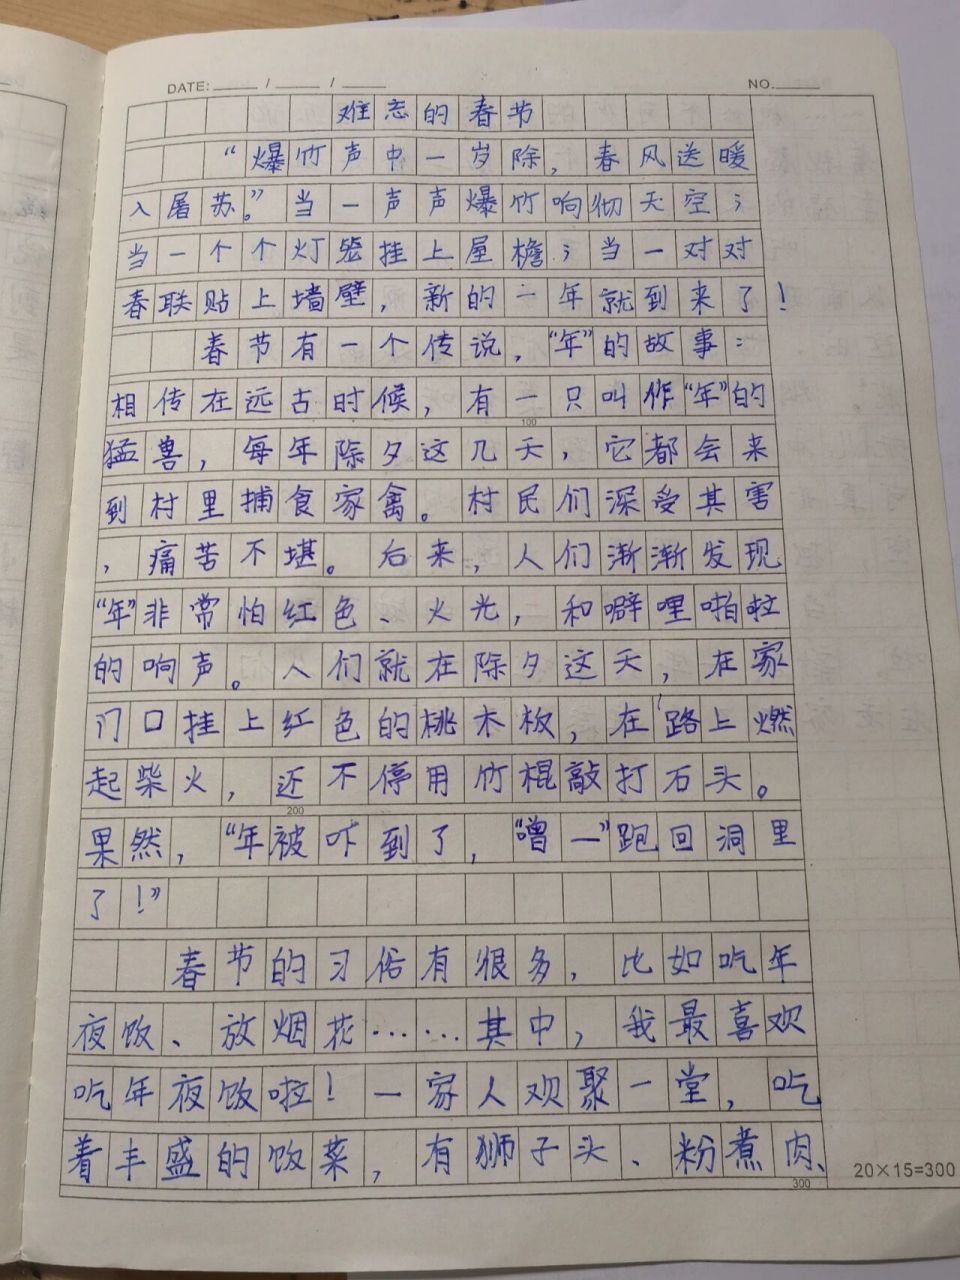 DATE: / /
NO.
难忘的春节
“爆竹声中一岁除，春风送暖
入屠苏。”当一声声爆竹响彻天空；
当一个个灯笼挂上屋檐；当一对对
春联贴上墙壁，新的一年就到来了！
春节有一个传说，“年”的故事：
相传在远古时候，有一只叫作“年”的
100
猛兽，每年除夕这几天，它都会来
到村里捕食家禽。村民们深受其害
，痛苦不堪。后来，人们渐渐发现
“年”非常怕红色、火光，和噼哩啪啦
的响声。人们就在除夕这天，在家
门口挂上红色的桃木板，在路上燃
起柴火，还不停用竹棍敲打石头。
200
果然，“年被吓到了，“噌一”跑回洞里
了！”
春节的习俗有很多，比如吃年
夜饭、放烟花……其中，我最喜欢
吃年夜饭啦！一家人欢聚一堂，吃
着丰盛的饭菜，有狮子头、粉煮肉、
300
20×15=300